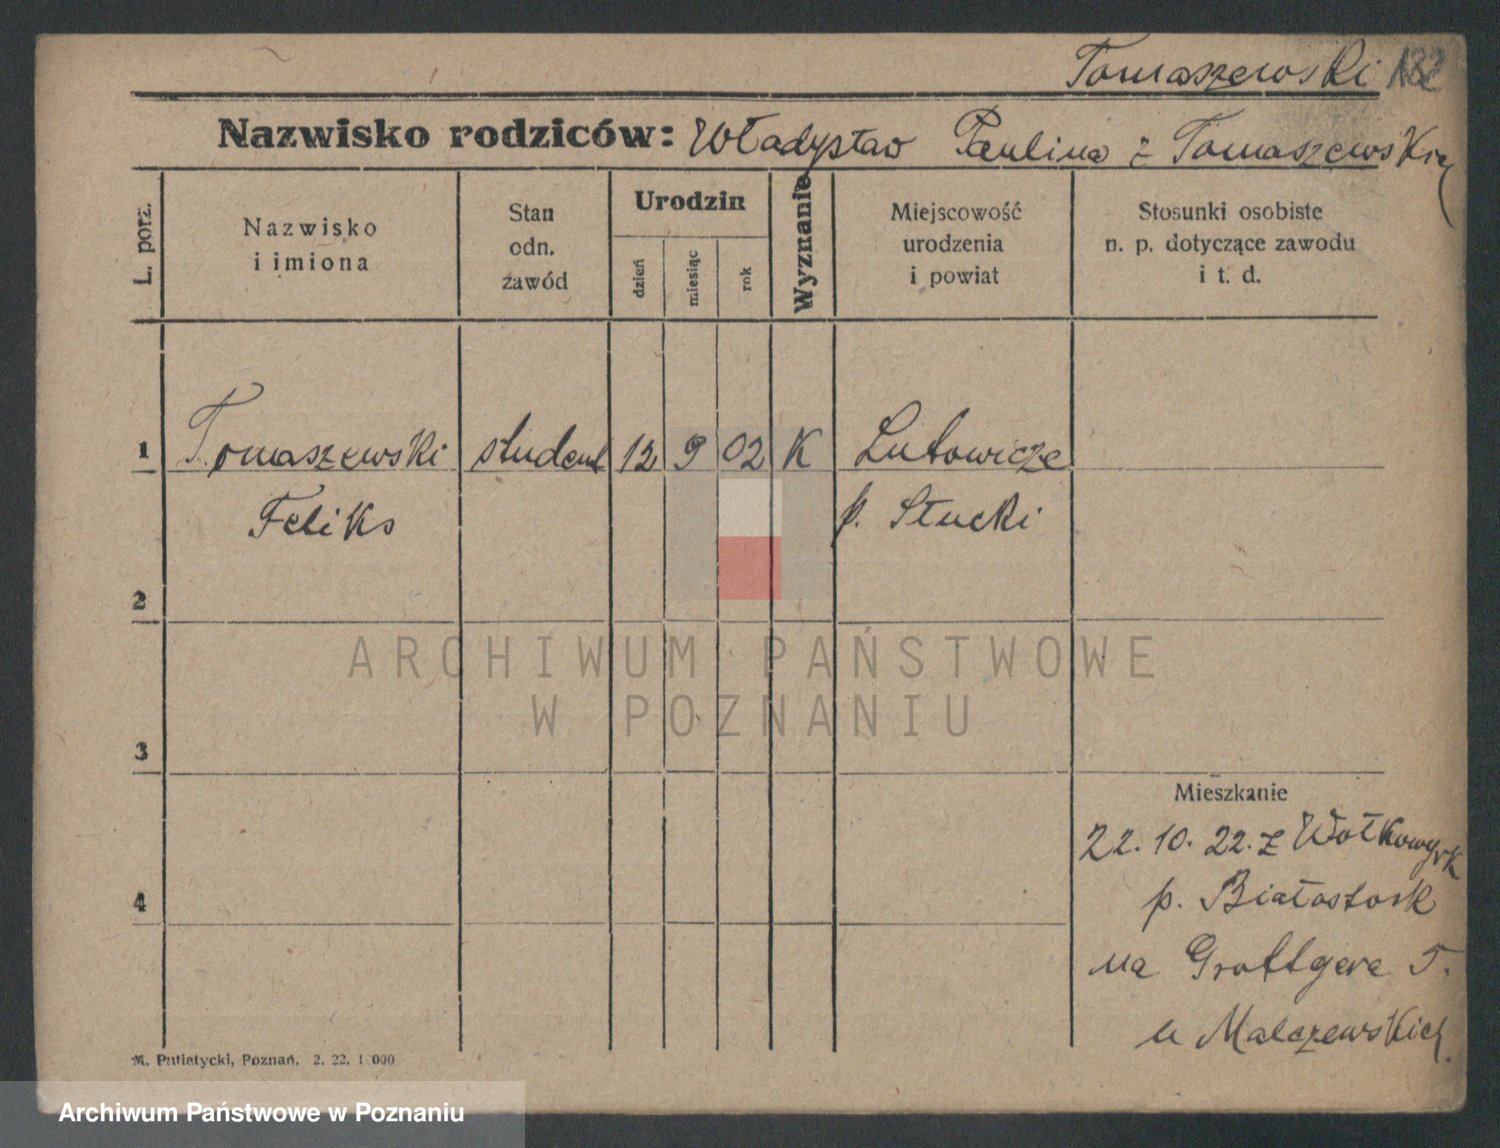 Tomaszewski 182
Nazwisko rodziców: Władysław Paulina z Tomaszewskich
L. porz.
Nazwisko
i imiona
Stan
odn.
zawód
Urodzin
dzień
miesiąc
rok
Wyznanie
Miejscowość
urodzenia
i powiat
Stosunki osobiste
n. p. dotyczące zawodu
i t. d.
1 Tomaszewski student 12 9 02 K Lutowicze
Feliks p. Słucki
2
3
4
Mieszkanie
22. 10. 22. z Wołkowysk
p. Białostock
na Grottgera 5.
u Malczewskich.
M. Putiatycki, Poznań. 2. 22. 1000
ARCHIWUM PAŃSTWOWE
W POZNANIU
Archiwum Państwowe w Poznaniu